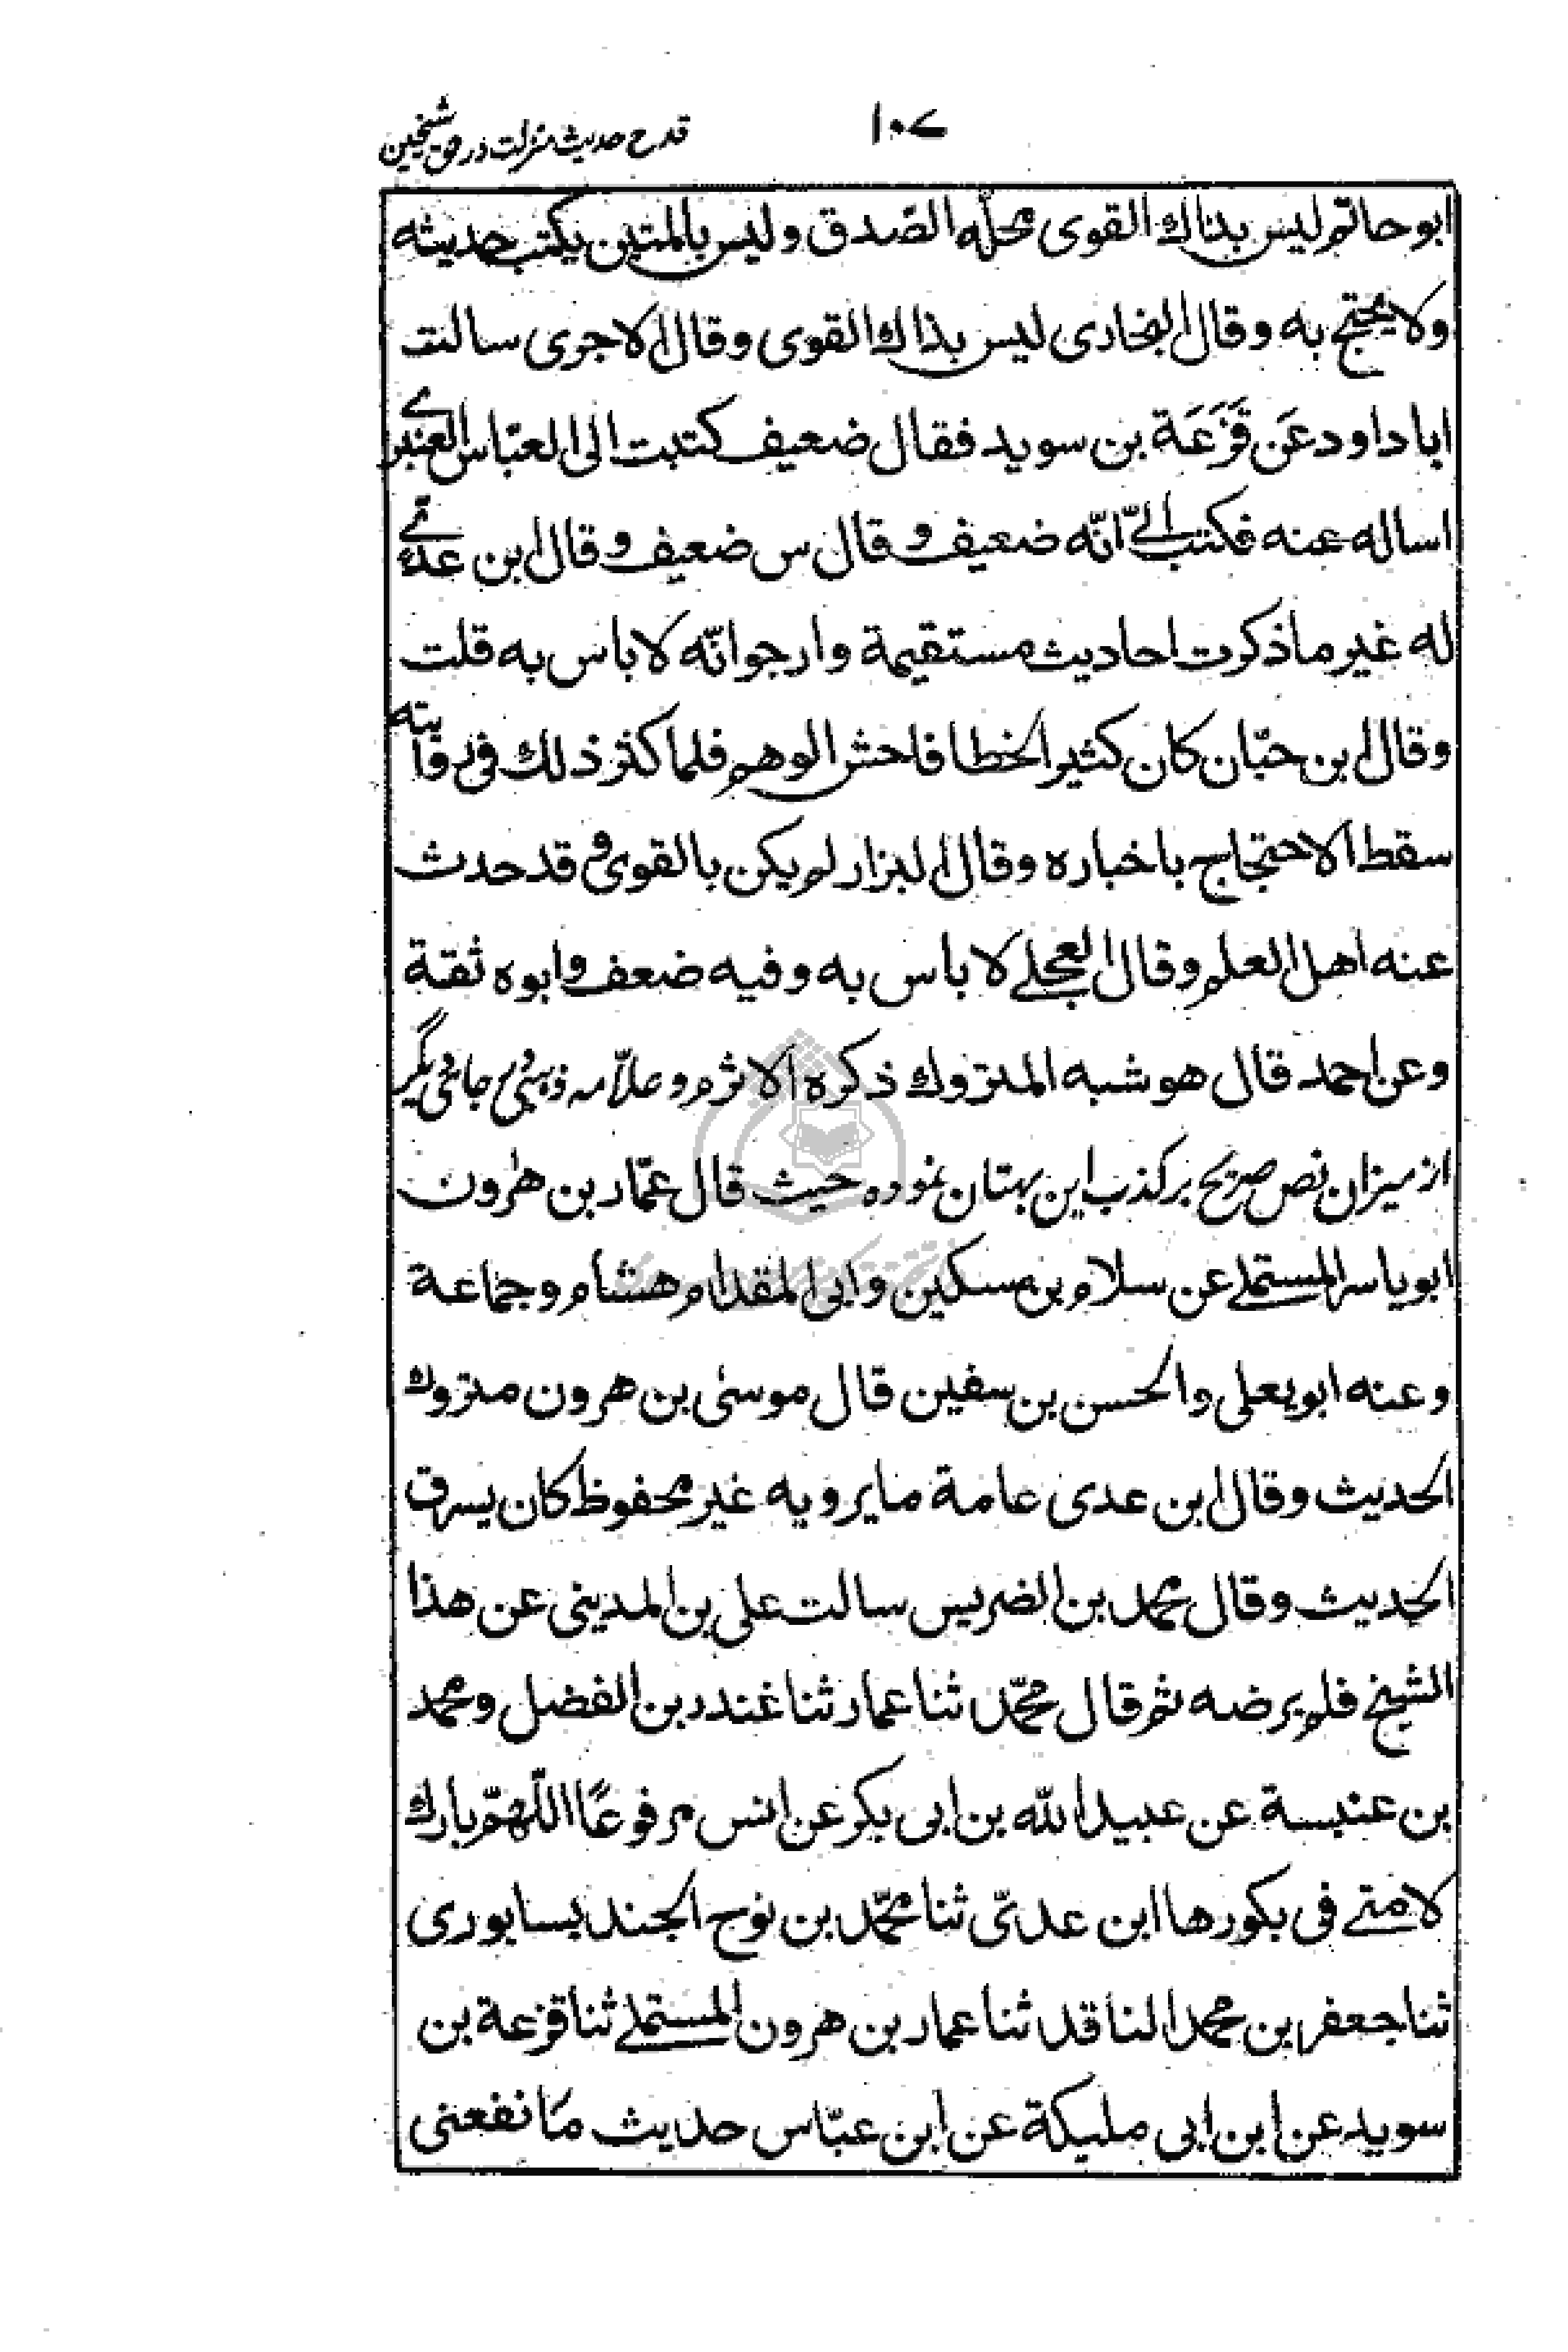 ۱۰۷
قدح حدیث منزلت در حق شیخین
ابو حاتم ليس بذاك القوى محلّه الصّدق وليس بالمتين يكتب حديثه
ولا يحتج به وقال البخارى ليس بذاك القوى وقال الاجرى سالت
ابا داود عَن قَزَعَة بن سويد فقال ضعيف كتبت الى العبّاس العنبرى
اساله عنه فكتب الىّ انّه ضعيف وقال س ضعيف وقال ابن عدىّ
له غير ما ذكرت احاديث مستقيمة وارجو انّه لا باس به قلت
وقال ابن حبّان كان كثير الخطا فاحش الوهم فلما كثر ذلك فى روايته
سقط الاحتجاج باخباره وقال البزار لم يكن بالقوى و قد حدث
عنه اهل العلم وقال العجلى لا باس به وفيه ضعف وابوه ثقة
وعن احمد قال هو شبه المتروك ذكره الاثرم و علّامه ذهبى جائى ديگر
از ميزان نص صريح بر كذب اين بهتان نموده حيث قال عمّار بن هٰرون
ابو ياسر المستملى عن سلام بن مسكين وابى المقدام هشام وجماعة
وعنه ابو يعلى والحسن بن سفين قال موسىٰ بن هرون متروك
الحديث وقال ابن عدى عامة ما يرويه غير محفوظ كان يسرق
الحديث وقال محمد بن الضريس سالت على بن المدينى عن هذا
الشيخ فلم يرضه ثم قال محمّد ثنا عمار ثنا غندر بن الفضل ومحمد
بن عنبسة عن عبيد الله بن ابى بكر عن انس مرفوعًا اللّهمّ بارك
لامتى فى بكورها ابن عدىّ ثنا محمّد بن نوح الجنديسابورى
ثنا جعفر بن محمد الناقد ثنا عمار بن هرون المستملى ثنا قزعة بن
سويد عن ابن ابى مليكة عن ابن عبّاس حديث مَا نفعنى